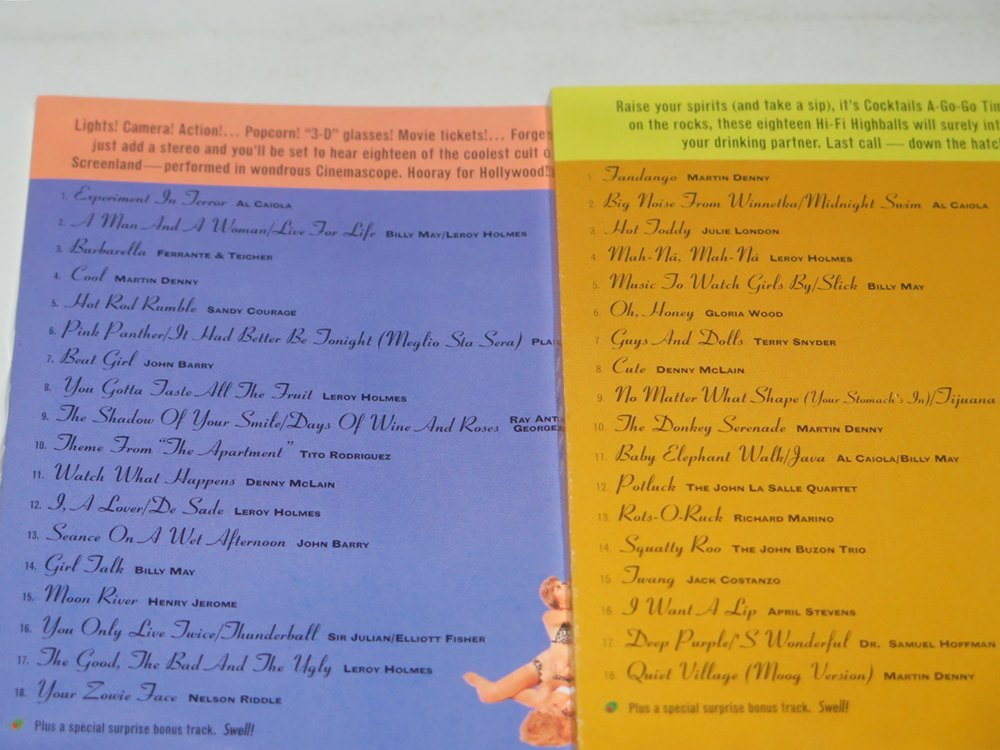 Lights! Camera! Action!... Popcorn! "3-D" glasses! Movie tickets!... Forge
just add a stereo and you'll be set to hear eighteen of the coolest cult
Screenland—performed in wondrous Cinemascope. Hooray for Hollywood!
1. Experiment In Terror AL CAIOLA
2. A Man And A Woman/Live For Life BILLY MAY/LEROY HOLMES
3. Barbarella FERRANTE & TEICHER
4. Cool MARTIN DENNY
5. Hot Rod Rumble SANDY COURAGE
6. Pink Panther/It Had Better Be Tonight (Meglio Sta Sera) PLA
7. Beat Girl JOHN BARRY
8. You Gotta Taste All The Fruit LEROY HOLMES
9. The Shadow Of Your Smile/Days Of Wine And Roses RAY ANT
GEORGE
10. Theme From "The Apartment" TITO RODRIGUEZ
11. Watch What Happens DENNY McLAIN
12. I, A Lover/De Sade LEROY HOLMES
13. Seance On A Wet Afternoon JOHN BARRY
14. Girl Talk BILLY MAY
15. Moon River HENRY JEROME
16. You Only Live Twice/Thunderball SIR JULIAN/ELLIOTT FISHER
17. The Good, The Bad And The Ugly LEROY HOLMES
18. Your Zowie Face NELSON RIDDLE
Plus a special surprise bonus track. Swell!
Raise your spirits (and take a sip), it's Cocktails A-Go-Go Tim
on the rocks, these eighteen Hi-Fi Highballs will surely int
your drinking partner. Last call — down the hatc
1. Fandango MARTIN DENNY
2. Big Noise From Winnetka/Midnight Swim AL CAIOLA
3. Hot Toddy JULIE LONDON
4. Mah-Ná, Mah-Ná LEROY HOLMES
5. Music To Watch Girls By/Slick BILLY MAY
6. Oh, Honey GLORIA WOOD
7. Guys And Dolls TERRY SNYDER
8. Cute DENNY McLAIN
9. No Matter What Shape (Your Stomach's In)/Tijuana
10. The Donkey Serenade MARTIN DENNY
11. Baby Elephant Walk/Java AL CAIOLA/BILLY MAY
12. Potluck THE JOHN LA SALLE QUARTET
13. Rots-O-Ruck RICHARD MARINO
14. Squatty Roo THE JOHN BUZON TRIO
15. Twang JACK COSTANZO
16. I Want A Lip APRIL STEVENS
17. Deep Purple/'S Wonderful DR. SAMUEL HOFFMAN
18. Quiet Village (Moog Version) MARTIN DENNY
Plus a special surprise bonus track. Swell!